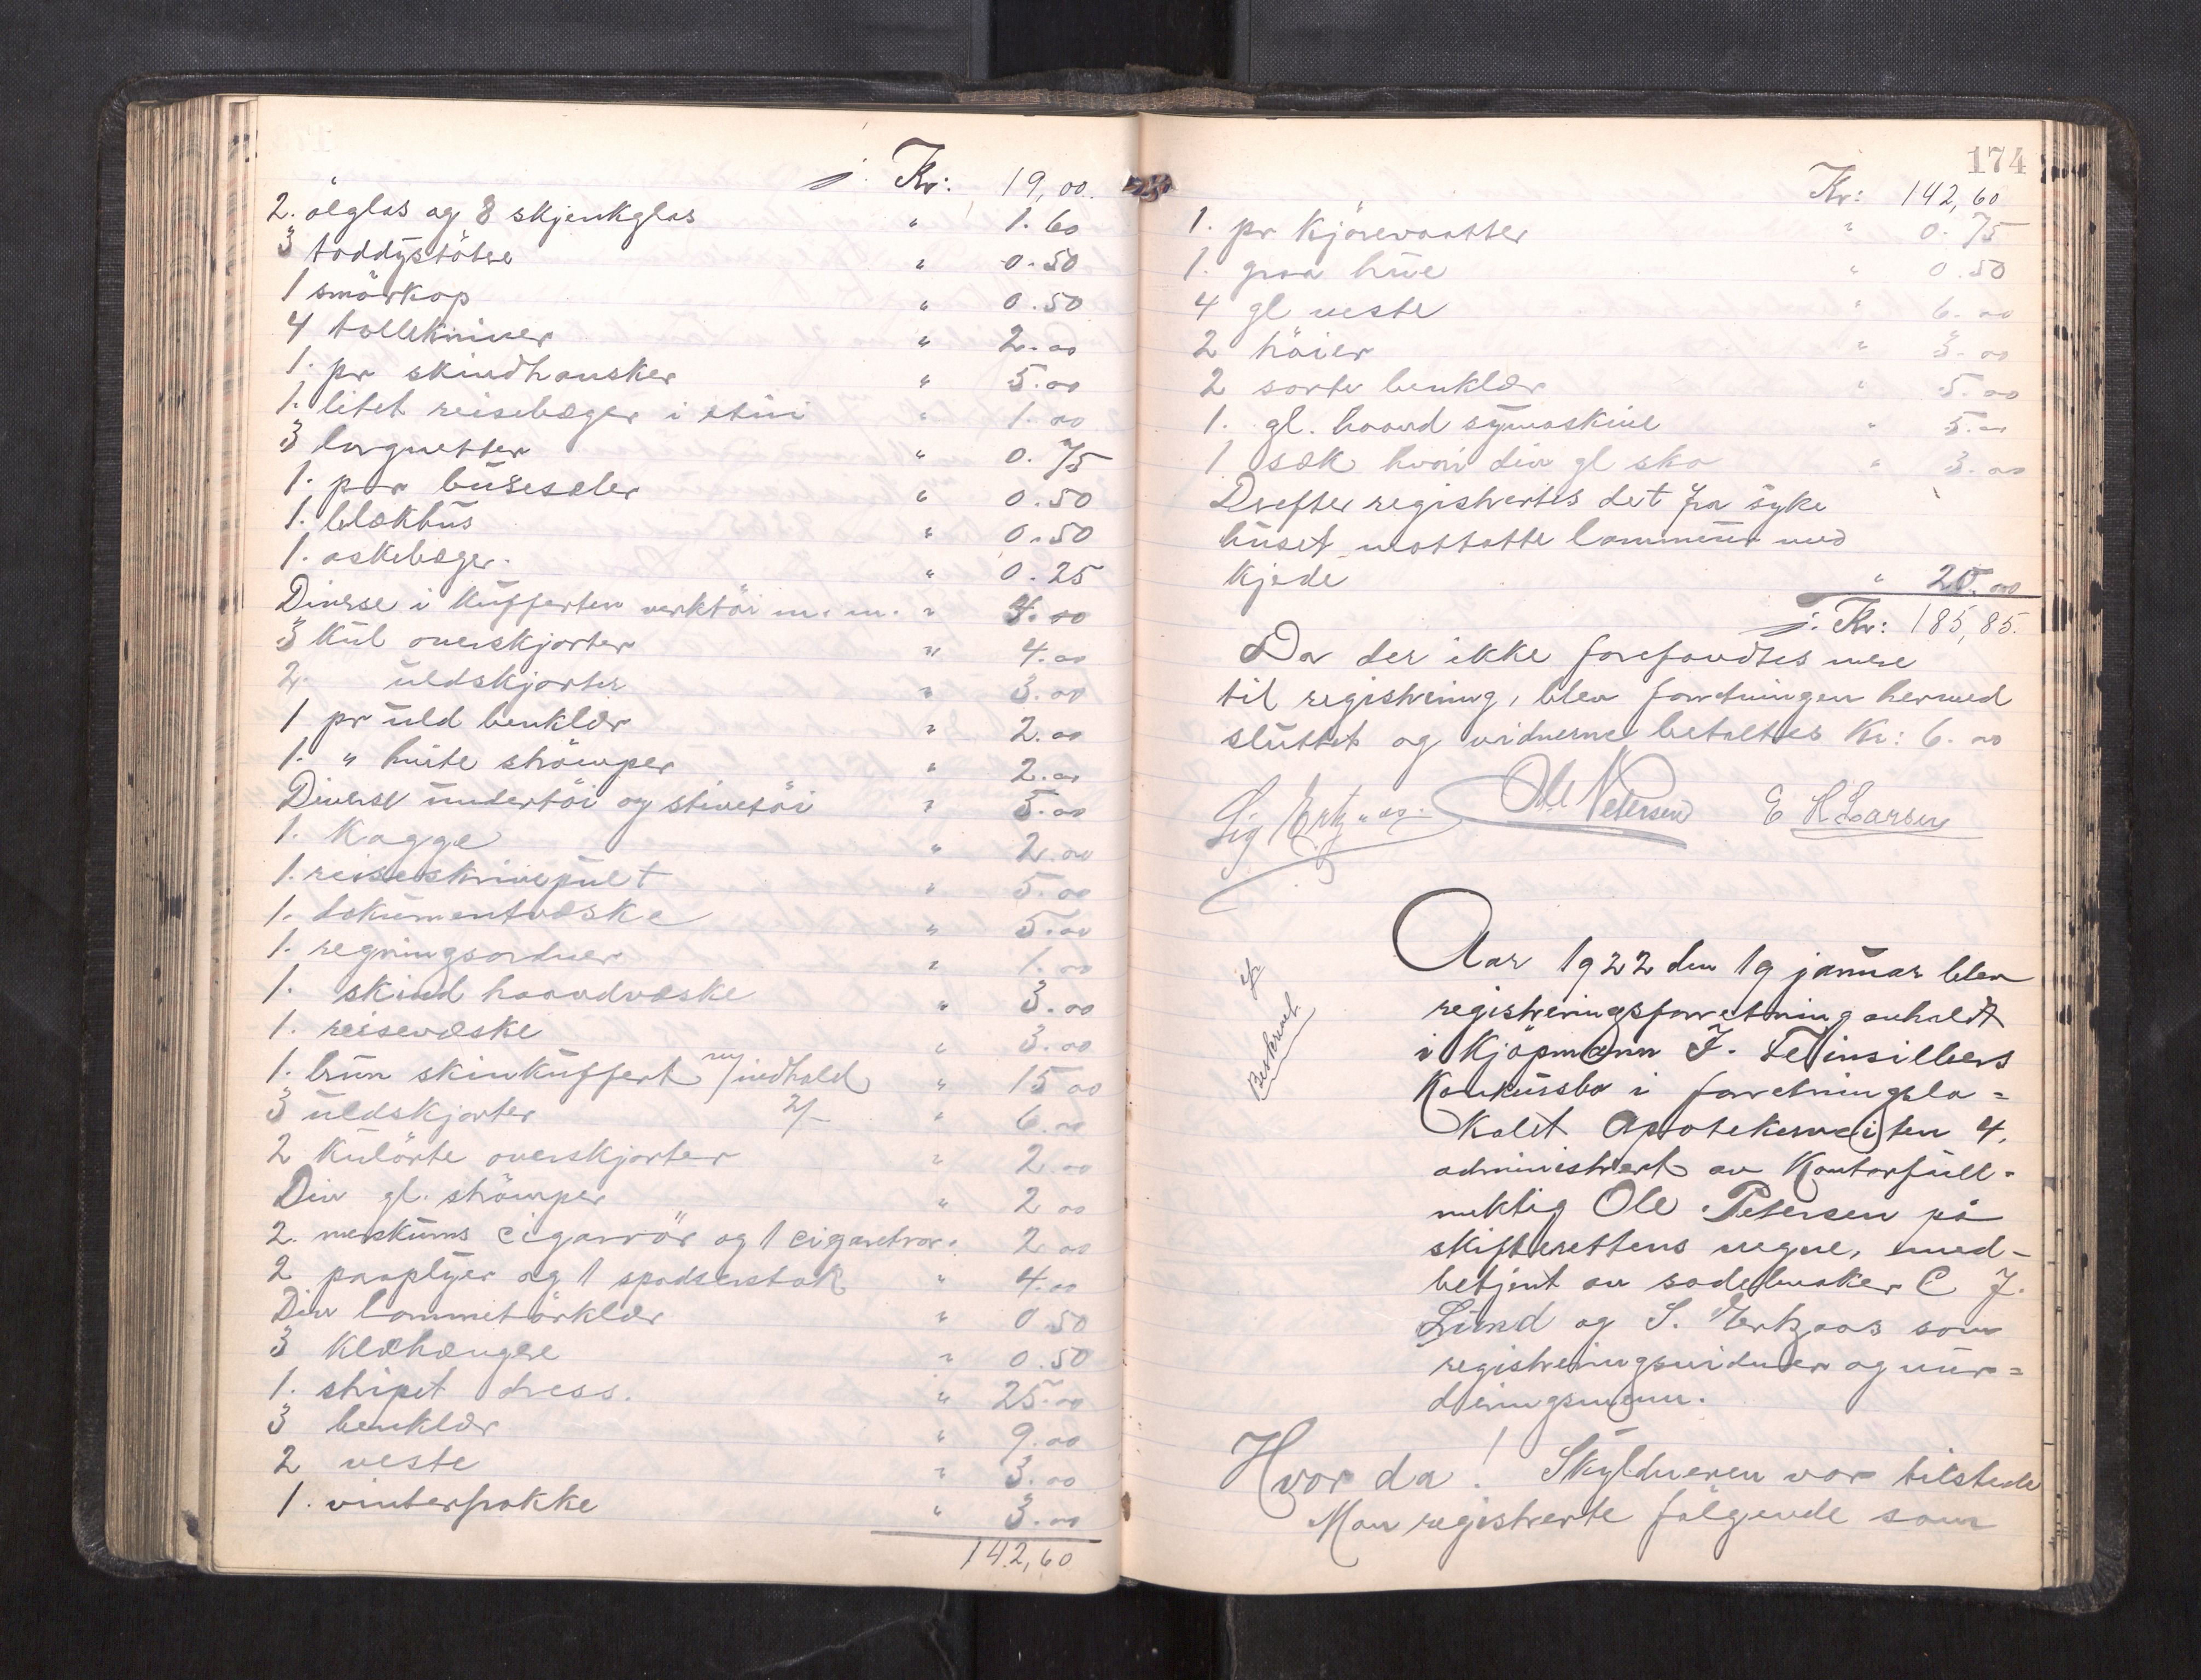 j. Kr: 19,00.
2. ölglas og 8 skjenkglas " 1.60
3 toddystötere " 0.50
1 smörkop " 0.50
4 tollekniver " 2.00
1. pr skindhansker " 5.00
1. litet reisebæger i etui " 1.00
3 lorgnetter " 0.75
1. par buseseler " 0.50
1. blækhus " 0.50
1. askebæger. " 0.25
Diverse i Kufferten verktöi m. m. " 4.00
3 Kul overskjorter " 4.00
2. uldskjorter " 3.00
1 pr uld benklær " 2.00
1. " hvite strömper " 2.00
Diverse undertöi og stivetöi " 5.00
1. Kagge " 2.00
1. reiseskrivepult " 5.00
1. dokumentvæske " 5.00
1. regningsordner " 1.00
1. skind haandvæske " 3.00
1. reisevæske " 3.00
1. brun skinkuffert m/indhold " 15 00
3 uldskjorter 2/- " 6.00
2 Kulörte overskjorter " 2.00
Div gl. strömper " 2 00
2. merskums cigarrör og 1 cigaretrør. 2 00
2 paraplyer og 1 spadserstok " 4.00
Div lommetörklær " 0 50
3 klæhengere " 0.50
1. stripet dress. " 25.00
3 benklær " 9.00
2 veste " 3.00
1. vinterfrakke " 3.00
142,60
174
Kr: 142,60
1. pr Kjörevaatter " 0.75
1. graa hue " 0.50
4 gl veste " 6.00
2 tröier " 3.00
2 sorte benklær " 5.00
1. gl. haand symaskine " 5.00
1 sæk hvori div gl sko " 3.00
Drefter registrertes det fra syke
huset mottatte lommeur med
Kjede " 20.00
j. Kr: 185,85.
Da der ikke forefandtes mere
til registrering, blev forretningen hermed
sluttet og vidnerne betaltes Kr: 6.00
Sig Ertzaas. Ole Petersen E K Larsen
Beskrevet
Aar 1922 den 19 januar blev
registreringsforretning avholdt
i Kjöpmann J. Feinsilbers
Konkursbo i forretningslo=
kalet Apotekerveiten 4,
administrert av Kontorfuld-
mektig Ole Petersen på
skifterettens vegne, med-
betjent av sadelmaker C J.
Lund og S. Ertzaas som
registreringsvidner og vur=
deringsmenn.
Hvor da! Skyldneren var tilstede
Man registrerte fölgende som